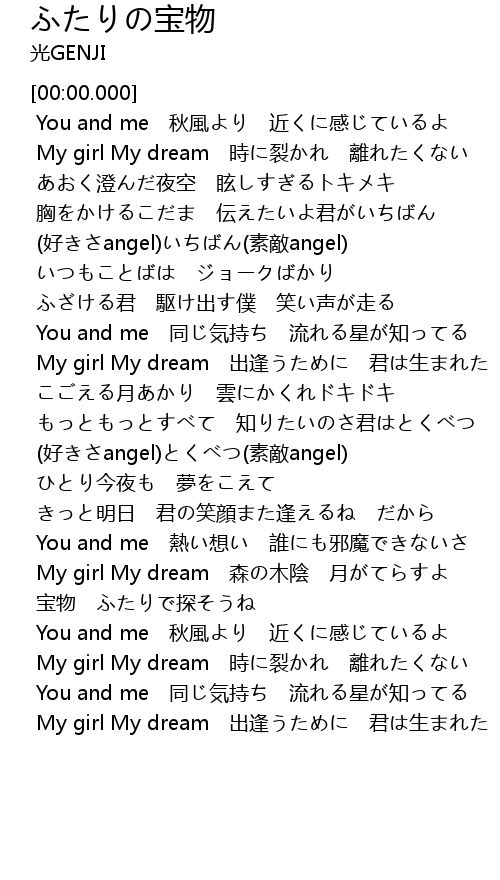 ふたりの宝物
光GENJI
[00:00.000]
You and me　秋風より　近くに感じているよ
My girl My dream　時に裂かれ　離れたくない
あおく澄んだ夜空　眩しすぎるトキメキ
胸をかけるこだま　伝えたいよ君がいちばん
(好きさangel)いちばん(素敵angel)
いつもことばは　ジョークばかり
ふざける君　駆け出す僕　笑い声が走る
You and me　同じ気持ち　流れる星が知ってる
My girl My dream　出逢うために　君は生まれた
こごえる月あかり　雲にかくれドキドキ
もっともっとすべて　知りたいのさ君はとくべつ
(好きさangel)とくべつ(素敵angel)
ひとり今夜も　夢をこえて
きっと明日　君の笑顔また逢えるね　だから
You and me　熱い想い　誰にも邪魔できないさ
My girl My dream　森の木陰　月がてらすよ
宝物　ふたりで探そうね
You and me　秋風より　近くに感じているよ
My girl My dream　時に裂かれ　離れたくない
You and me　同じ気持ち　流れる星が知ってる
My girl My dream　出逢うために　君は生まれた